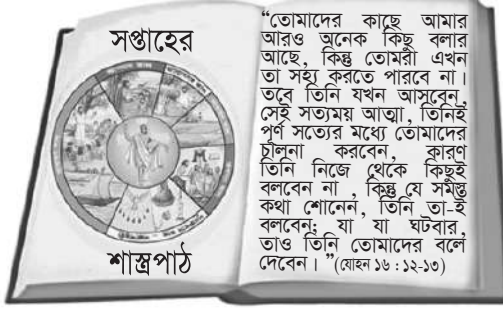 সপ্তাহের
শাস্ত্রপাঠ
“তোমাদের কাছে আমার
আরও অনেক কিছু বলার
আছে, কিন্তু তোমরা এখন
তা সহ্য করতে পারবে না।
তবে তিনি যখন আসবেন,
সেই সত্যময় আত্মা, তিনিই
পূর্ণ সত্যের মধ্যে তোমাদের
চালনা করবেন, কারণ
তিনি নিজে থেকে কিছুই
বলবেন না , কিন্তু যে সমস্ত
কথা শোনেন, তিনি তা-ই
বলবেন; যা যা ঘটবার,
তাও তিনি তোমাদের বলে
দেবেন। ”(যোহন ১৬ : ১২-১৩)